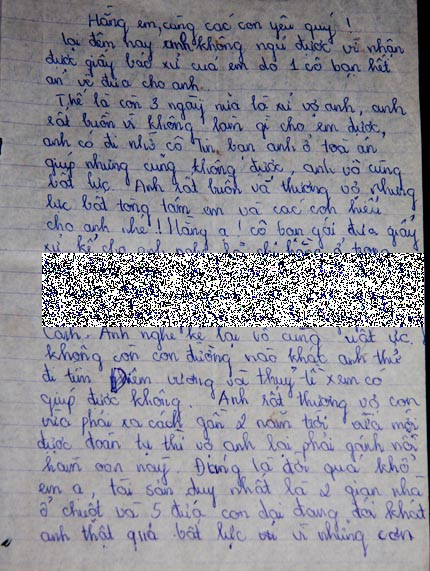 Hằng em, cùng các con yêu quý!
Lại đêm nay anh không ngủ được vì nhận
được giấy báo xử của em do 1 cô bạn hết
án về đưa cho anh.
Thế là còn 3 ngày nữa là xử vợ anh, anh
rất buồn vì không làm gì cho em được,
anh có đi nhờ cô Tin bạn anh ở toà án
giúp nhưng cũng không được, anh vô cùng
bất lực. Anh rất buồn và thương vợ nhưng
lực bất tòng tâm em và các con hiểu
cho anh nhé! Hằng ạ! cô bạn gái đưa giấy
xử kể cho anh nghe
cảnh. Anh nghe kể lại vô cùng uất ức.
không còn con đường nào khác anh thử
đi tìm Diêm vương và thuỷ tề xem có
giúp được không. Anh rất thương vợ con
vừa phải xa cách gần 2 năm trời vừa mới
được đoàn tụ thì vợ anh lại phải gánh nỗi
hàm oan này. Đúng là đời quá khổ
em ạ, tài sản duy nhất là 2 gian nhà
ổ chuột và 5 đứa con dại đang đói khát
anh thật quá bất lực vì những cơn